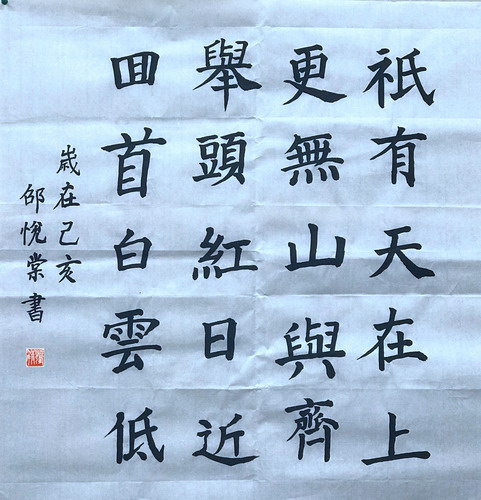 祇有天在上
更無山與齊
舉頭紅日近
回首白雲低
歲在己亥
邵悅棠書